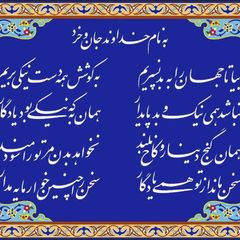 به نام خداوند جان و خرد
بیا تا جهان را به بد نسپریم به کوشش همه دست نیکی بریم
نباشد همی نیک و بد پایدار همان به که نیکی بود یادگار
همان گنج و دینار و کاخ بلند نخواهد بدن مر تو را سودمند
سخن ماند از تو همی یادگار سخن را چنین خوار مایه مدار